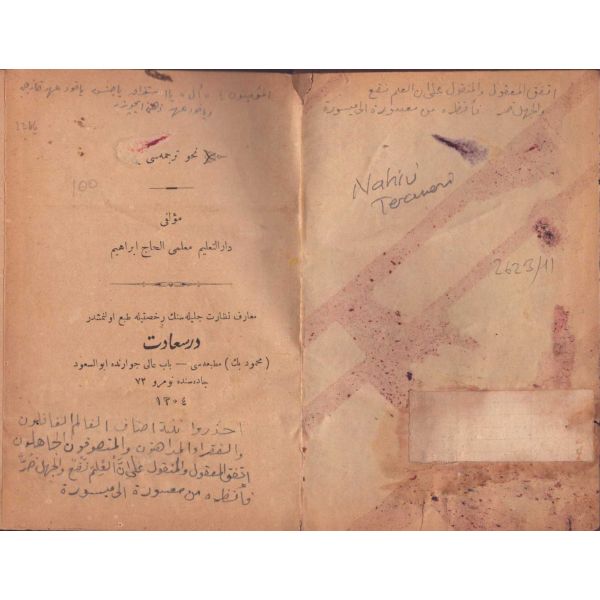 اتفق المعقول والمنقول على ان العلم نفع
والجهل ضر من معسورة الى ميسورة
Nahiv
2623/11
نحو ترجمه‌سی
100
مؤلفی
دارالتعلیم معلمی الحاج ابراهیم
معارف نظارت جلیله‌سنك رخصتیله طبع اولنمشدر
درسعادت
( محمود بك ) مطبعه‌سی — باب عالی جوارنده ابوالسعود
جاده‌سنده نومرو ٧٢
١٣٠٤
احذروا ثلثة اصناف العالم الغافلون
والفقراء المداهنون والمتصوفون الجاهلون
اتفق المعقول والمنقول على ان العلم نفع والجهل ضر
من معسورة الى ميسورة